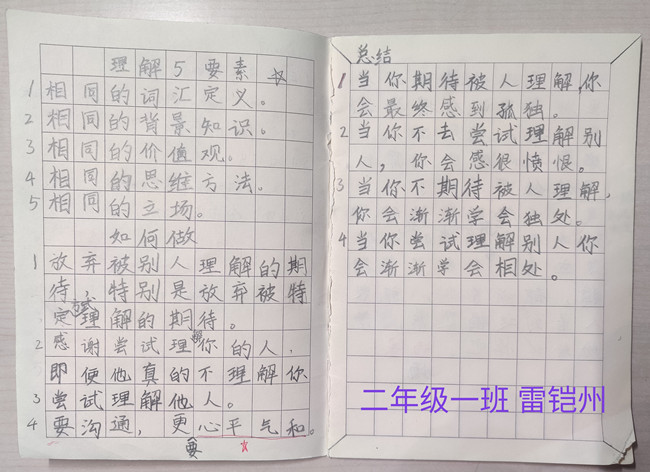 理解5要素
1 相同的词汇定义。
2 相同的背景知识。
3 相同的价值观。
4 相同的思维方法。
5 相同的立场。
如何做
1 放弃被别人理解的期
待，特别是放弃被特
定方式理解的期待。
2 感谢尝试理解你的人，
即便他真的不理解你
3 尝试理解他人。
4 要沟通，更要心平气和。
总结
1 当你期待被人理解，你
会最终感到孤独。
2 当你不去尝试理解别
人，你会感很愤恨。
3 当你不期待被人理解，
你会渐渐学会独处。
4 当你尝试理解别人你
会渐渐学会相处。
二年级一班 雷铠州